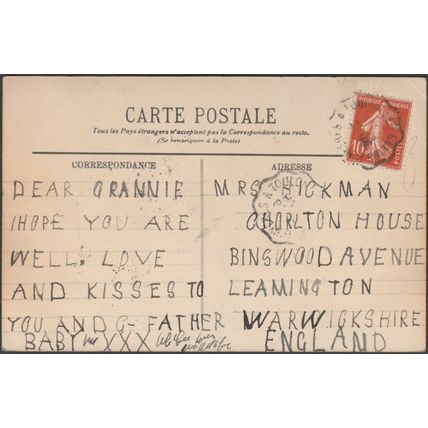 CARTE POSTALE
Tous les Pays étrangers n'acceptent pas la Correspondance au recto.
(Se renseigner à la Poste)
CORRESPONDANCE
DEAR GRANNIE
I HOPE YOU ARE
WELL LOVE
AND KISSES TO
YOU AND G-FATHER
BABY XXX
ADRESSE
MRS HICKMAN
CHORLTON HOUSE
BINSWOOD AVENUE
LEAMINGTON
WARWICKSHIRE
ENGLAND
REPUBLIQUE FRANÇAISE
10
POSTES